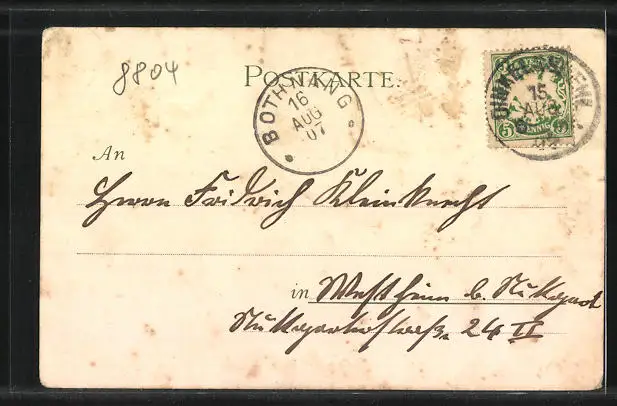 8804
POSTKARTE.
BOTHNANG
16
AUG
07
15
AUG
5 PFENNIG 5
An
Herrn Fridrich Kleinknecht
in Westheim b. Stuttgart
Stuttgarterstraße 24 II